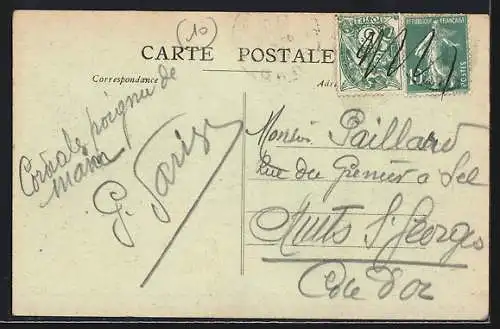 10
CARTE POSTALE
Correspondance
Cordiale poignée de
main
G. Paris
POSTES
REPUBLIQUE FRANÇAISE
POSTES
Monsieur Paillard
Rue du Grenier a Sel
Nuits St Georges
Cote d'or